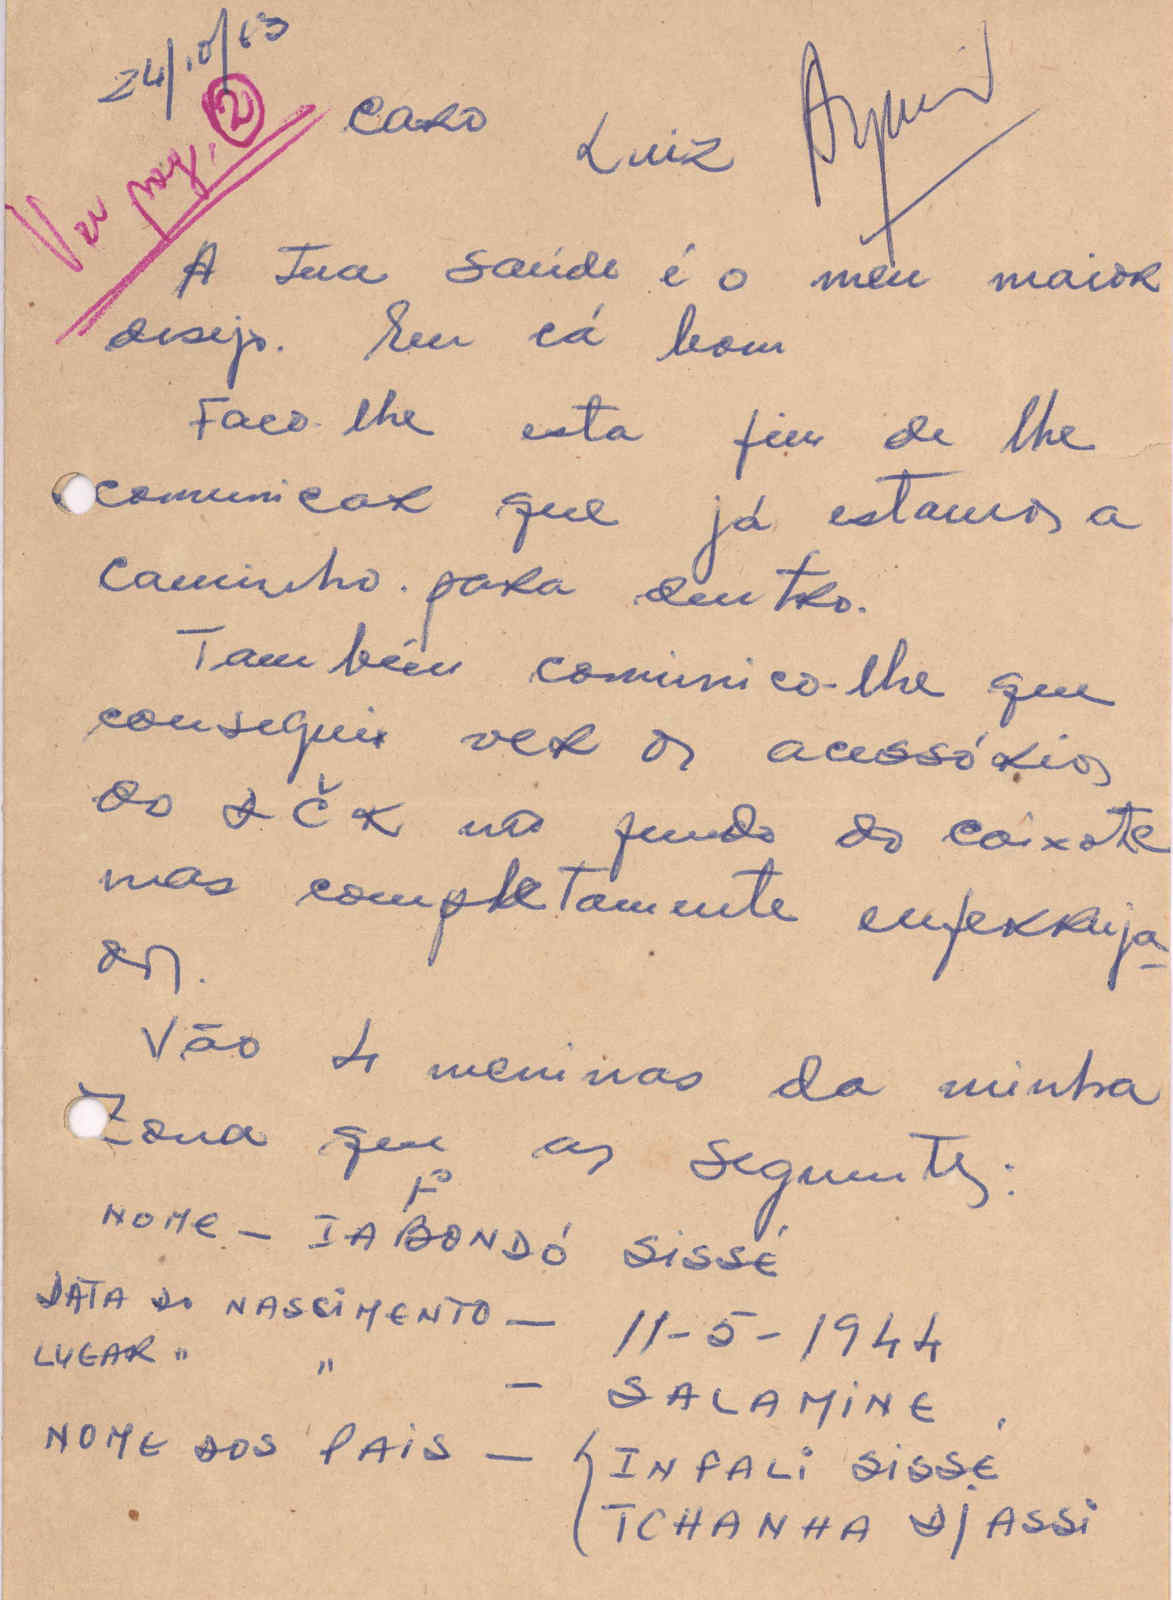 24/10/63
Ver pag. 2
Caro Luiz
A tua saúde é o meu maior
desejo. Eu cá bom
Faco-lhe esta fim de lhe
comunicar que já estamos a
caminho para dentro.
Tambén comunico-lhe que
conseguir ver os acessórios
do DČK no fundo do caixote
mas completamente enferruja-
dos.
Vão 4 meninas da minha
Zona que as seguintes:
NOME - IABONDÓ SISSÉ
DATA DO NASCIMENTO - 11-5-1944
LUGAR " " - SALAMINE.
NOME DOS PAIS - { INFALI SISSÉ
TCHANHA DJASSI